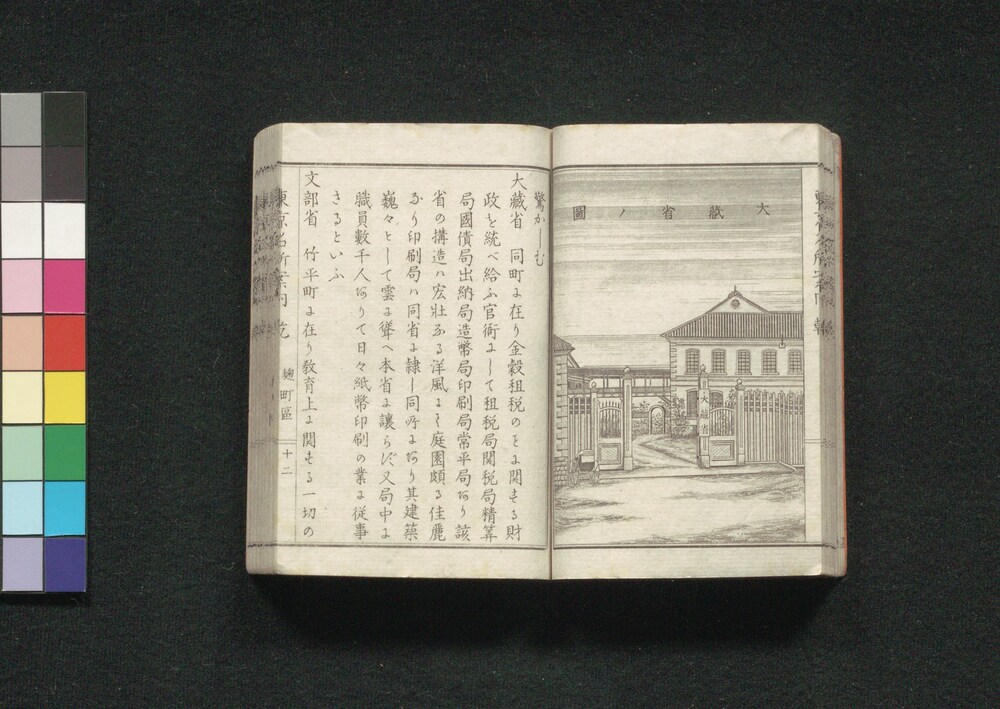 大蔵省ノ圖
大蔵省
驚かしむ
大藏省　同町に在り金穀租税のとに関する財
政を統べ給ふ官衙にして租税局関税局精算
局國債局出納局造幣局印刷局常平局あり該
省の搆造ハ宏壮なる洋風にて庭園頗る佳麗
なり印刷局ハ同省に隷し同所にあり其建築
巍々として雲に聳へ本省に譲らず又局中に
職員數千人ありて日々紙幣印刷の業に従事
さるといふ
文部省　竹平町に在り教育上に関する一切の
東京名所案内　乾
麹町區
十二